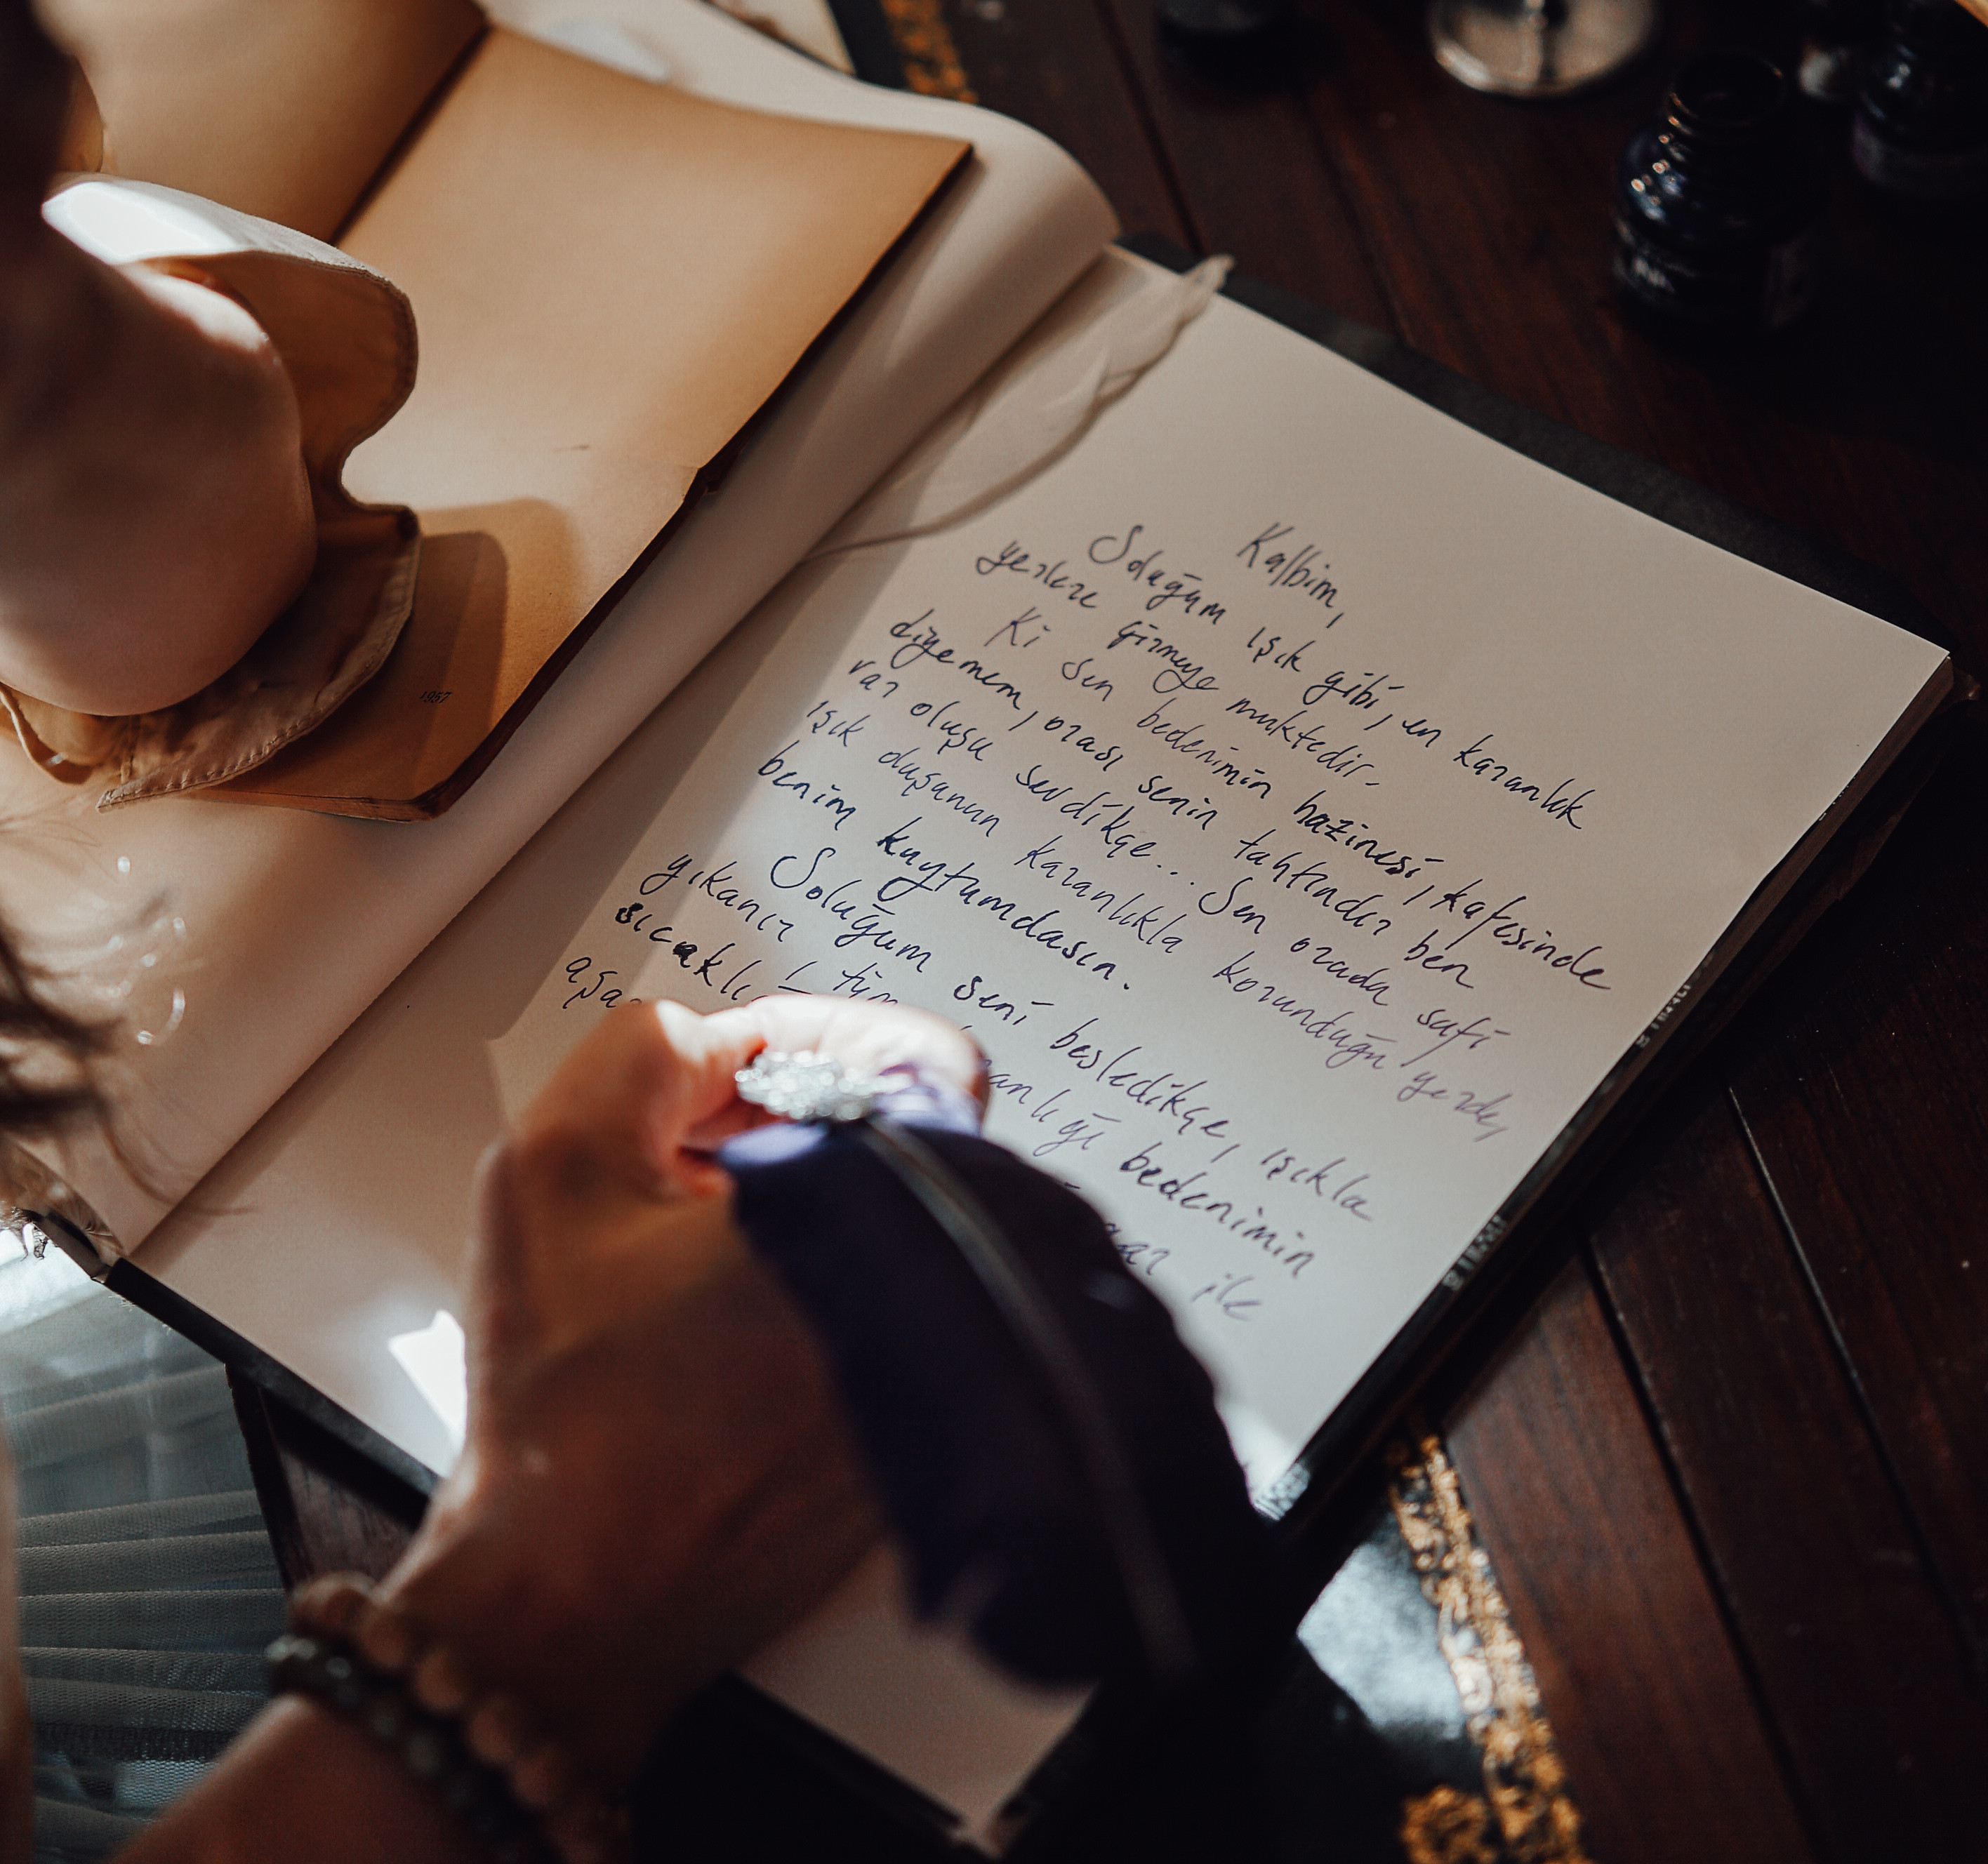 1957
Kalbim,
Soluğum ışık gibi, en karanlık
yerlere girmeye muktedir.
Ki sen bedenimin hazinesi, kafesinde
diyemem, orası senin tahtındır ben
var oluşu sevdikçe... Sen orada safi
ışık duşunun karanlıkla korunduğu yerde,
benim kuytumdasın.
Soluğum seni besledikçe, ışıkla
yıkanır bedenimin
sıcaklı ile